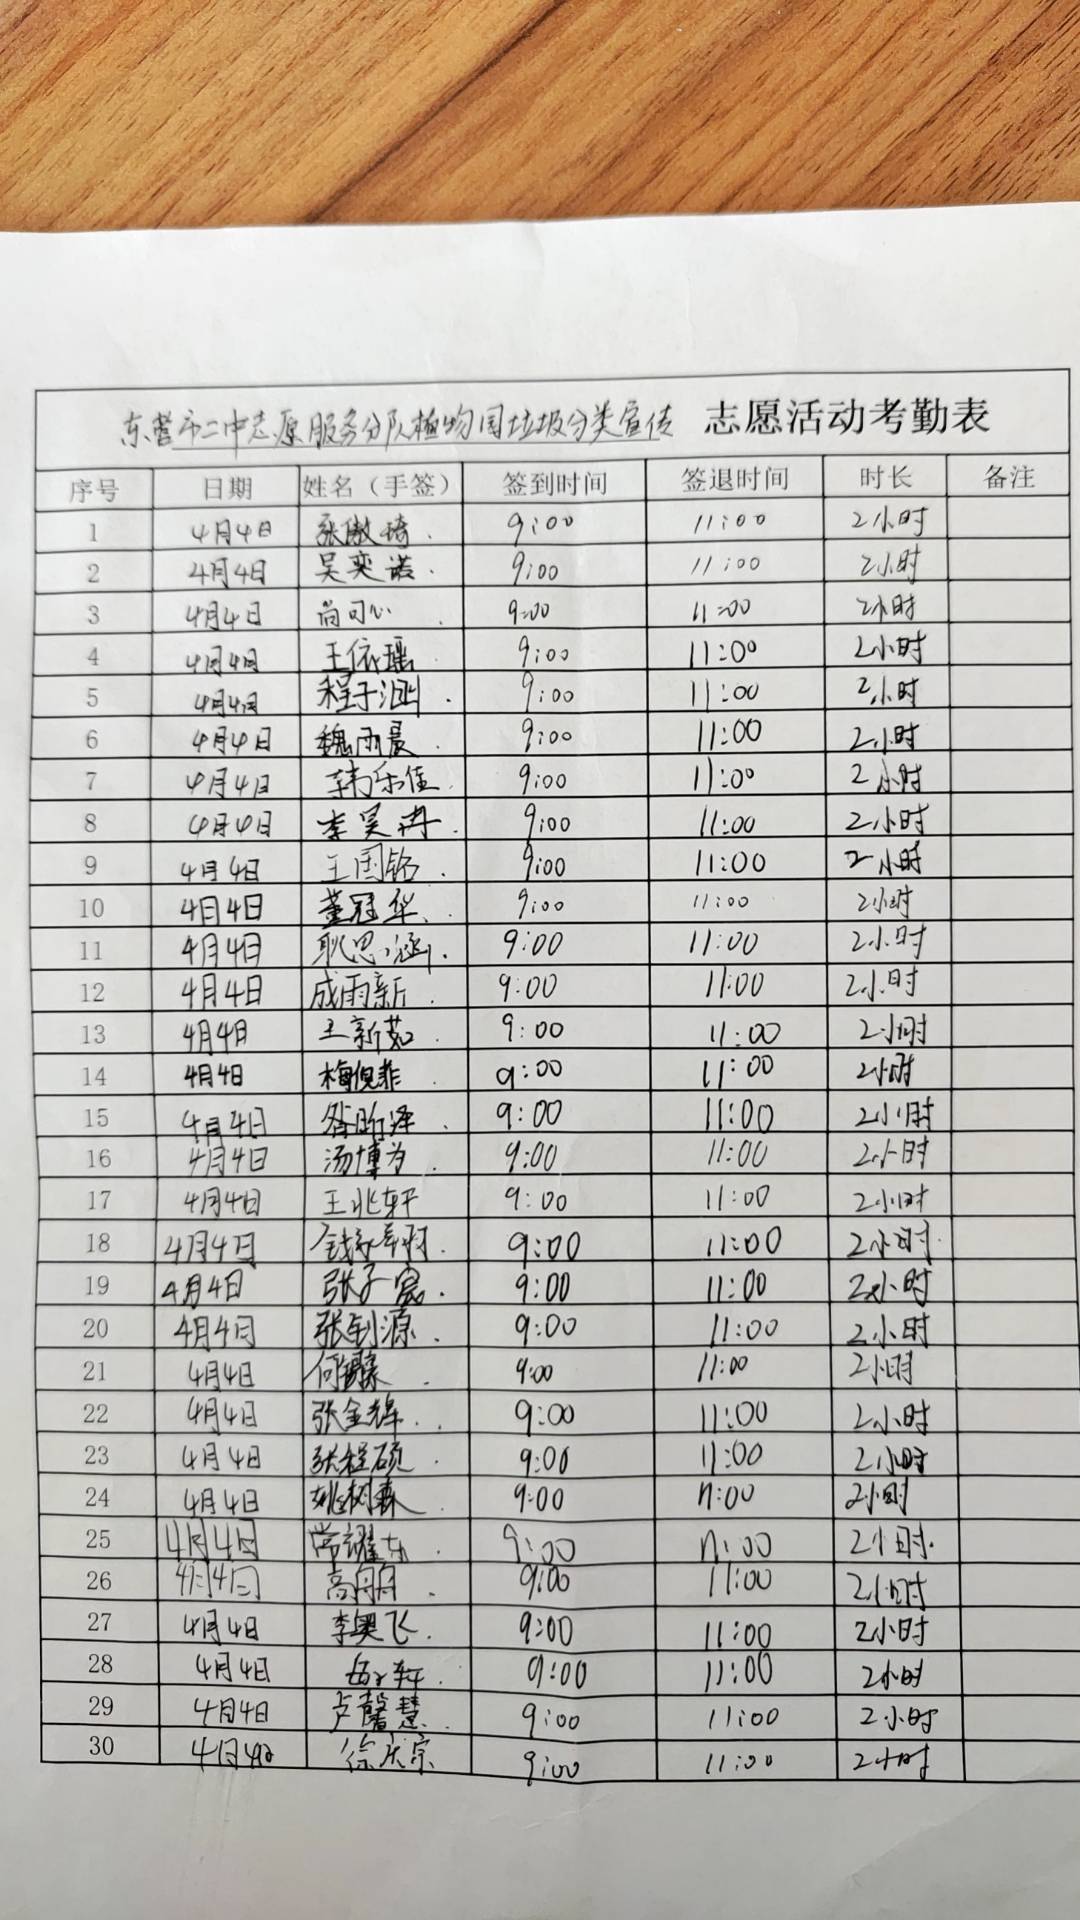 东营市二中志愿服务分队植物园垃圾分类宣传 志愿活动考勤表
序号 日期 姓名（手签） 签到时间 签退时间 时长 备注
1 4月4日 张傲琦 9:00 11:00 2小时
2 4月4日 吴奕诺 9:00 11:00 2小时
3 4月4日 尚可心 9:00 11:00 2小时
4 4月4日 王依瑶 9:00 11:00 2小时
5 4月4日 程子涵 9:00 11:00 2小时
6 4月4日 魏雨晨 9:00 11:00 2小时
7 4月4日 韩乐佳 9:00 11:00 2小时
8 4月4日 李昊冉 9:00 11:00 2小时
9 4月4日 王国铭 9:00 11:00 2小时
10 4日4日 董冠华 9:00 11:00 2小时
11 4月4日 耿思涵 9:00 11:00 2小时
12 4月4日 成雨新 9:00 11:00 2小时
13 4月4日 王新茹 9:00 11:00 2小时
14 4月4日 梅倪菲 9:00 11:00 2小时
15 4月4日 9:00 11:00 2小时
16 4月4日 汤博为 9:00 11:00 2小时
17 4月4日 王兆轩 9:00 11:00 2小时
18 4月4日 9:00 11:00 2小时
19 4月4日 张子宸 9:00 11:00 2小时
20 4月4日 张钊源 9:00 11:00 2小时
21 4月4日 9:00 11:00 2小时
22 4月4日 张金辉 9:00 11:00 2小时
23 4月4日 张程硕 9:00 11:00 2小时
24 4月4日 姚树森 9:00 11:00 2小时
25 4月4日 常耀东 9:00 11:00 2小时
26 4月4日 高冉冉 9:00 11:00 2小时
27 4月4日 李奥飞 9:00 11:00 2小时
28 4月4日 岳子轩 9:00 11:00 2小时
29 4月4日 卢馨慧 9:00 11:00 2小时
30 4月4日 徐庆宗 9:00 11:00 2小时